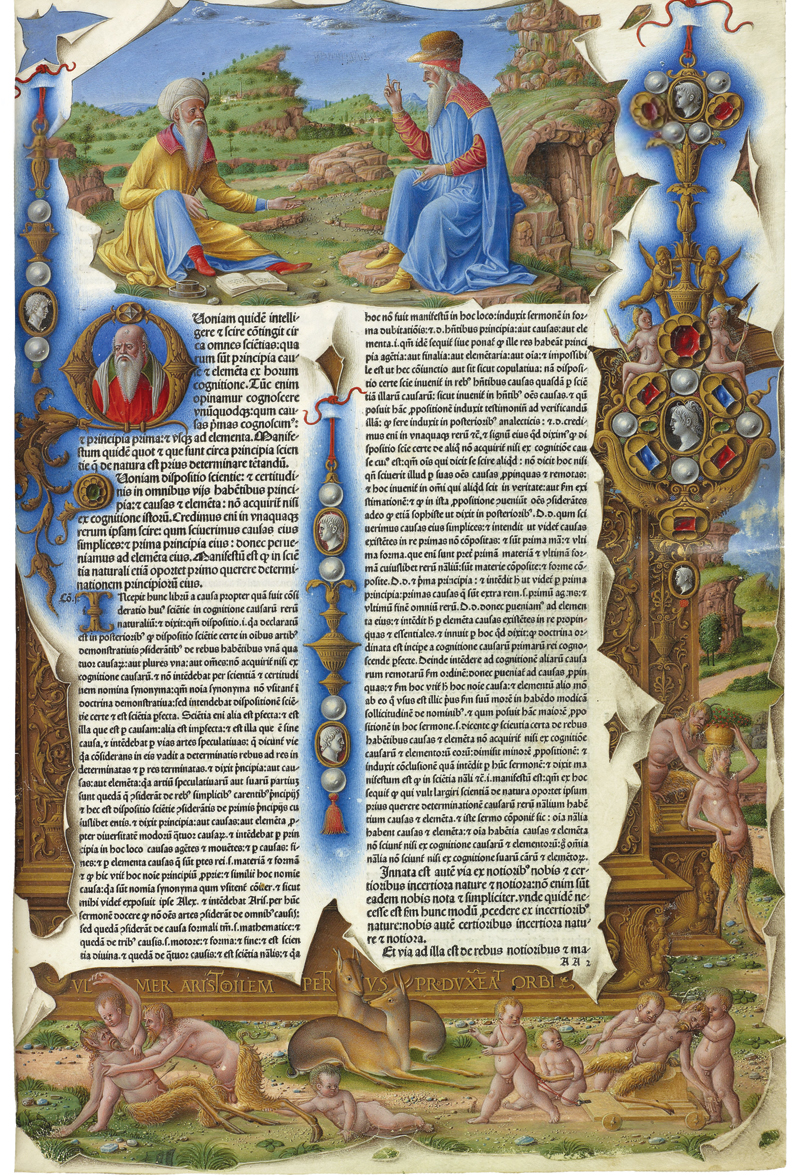 Uoniam quidē intelli
gere & scire cōtingit cir
ca omnes sciētias: qua
rum sūt principia cau
se & elemēta ex horum
cognitione. Tūc enim
opinamur cognoscere
vnūquodq;: qum cau
sas pᵒmas cognoscimᵒ:
& principia prima: & vsq; ad elementa. Manife-
stum quidē quot & que sunt circa principia scien
tie q̄ de natura est prius determinare tētandū.
Uoniam dispositio scientie: & certitudi
nis in omnibus vijs habētibus princi-
pia: & causas & elemēta: nō acquirit nisi
ex cognitione istorū. Credimus eni in vnaquaq;
rerum ipsam scire: qum sciuerimus causas eius
simplices: & prima principia eius: donec perue-
niamus ad elementa eius. Manifestū est ꝙ in sciē
tia naturali etiā oportet primo querere determi-
nationem principiorū eius.
Cō. j.
INcepit hunc librū a causa propter quā fuit cōsi
deratio huiᵒ sciētie in cognitione causarū rerū
naturaliū: & dixit: qm̄ dispositio. i. q̄a declaratū
est in posteriorib᾽ ꝙ dispositio sciētie certe in oibus artib᾽
demonstratiuis ↄsiderātib᾽ de rebus habētibus vnā qua
tuor causaꝝ: aut plures vna: aut omēs: nō acquirit nisi ex
cognitione causarū. & nō intēdebat per scientiā & certitudi
nem nomina synonyma: qm̄ noīa synonyma nō vsitant̄ ī
doctrina demonstratiua: sed intendebat dispositionē sciē-
tie certe & est sciētia pfecta. Sciētia eni alia est pfecta: & est
illa que est p causam: alia est impfecta: & est illa que ē sine
causa, & intēdebat p vias artes speculatiuas: q̄ dicunt̄ vie
q̄a cōsiderans in eis vadit a determinatis rebus ad res in
determinatas & p res terminatas. & dixit pncipia: aut cau-
sas: aut elemēta: q̄a artiū speculatiuarū aut suarū partiuȝ
sunt quedā q̄ ↄsiderāt de reb᾽ simplicib᾽ carentib᾽ pncipijs
& hec est dispositio sciētie ↄsiderātis de primis pncipijs cu
iuslibet entis. & dixit principia: aut causas: aut elemēta ,p-
pter diuersitatē modorū q̄tuor causaꝝ. & intēdebat p prin
cipia in hoc loco causas agētes & mouētes: & p causas: fi-
nes: & p elementa causas q̄ sūt ptes rei. s. materiā & formā
& ꝙ hic vtit̄ hoc noie principiū ,pprie: & similiī hoc nomie
causa: q̄a sūt nomia synonyma qum vsitent̄ cōiter. & sicut
mihi videt̄ exposuit ipse Alex. & intēdebat Aris. per hūc
sermonē docere ꝙ nō oēs artes ↄsiderāt de omnib᾽ causis:
sed quedā ↄsiderāt de causa formali tm̄. s. mathematice: &
quedā de trib᾽ causis. s. motore: & forma: & fine: & est scien
tia diuina. & quedā de q̄tuor causis: & est sciētia nālis: & q̄a
hoc nō fuit manifestū in hoc loco: induxit sermonē in for-
ma dubitatiōis: & .d. hn̄tibus principia: aut causas: aut ele
menta. i. qm̄ idē sequit̄ siue ponat̄ ꝙ ille res habeāt princi
pia agētia: aut finalia: aut elemētaria: aut oīa: & impossibi
le est ut hec cōiunctio aut sit sicut copulatiua: nā disposi-
tio certe scie inuenit̄ in reb᾽ hn̄tibus causas quasdā p sciē
tiā illarū causarū: sicut inuenit̄ in hn̄tib᾽ oēs causas. & qū
posuit hāc ,ppositionē induxit testimoniū ad verificandū
illā: ꝙ fere induxit in posteriorib᾽ analecticis: & .d. credi-
mus eni in vnaquaq; rerū &c̄, & signū eius qd̄ diximᵒ ꝙ di
spositio scie certe de aliq̄ nō acquirit̄ nisi ex cognitiōe cau
se cuiᵒ est: qm̄ oīs qui dicit se scire aliqd̄: nō dicit hoc nisi
qn̄ sciuerit illud p suas oēs causas ,ppinquas & remotas:
& hoc inuenit̄ in omī qui aliqd̄ scit in veritate: aut fm̄ exi
stimationē: & ꝙ in ista ,ppositione ↄueniūt oēs ↄsiderātes
adeo ꝙ etiā sophiste ut dixit in posteriorib᾽. D.d. qum sci
uerimus causas eius simplices: & intendit ut videt̄ causas
existētes in re primas nō cōpositas: & sūt prima mā: & vlti
ma forma. que eni sunt preter primā materiā & vltimā for-
mā cuiuslibet rerū nāliū: sūt materie cōposite: & forme cō-
posite. D.d. & pma principia: & intēdit ut videt̄ p prima
principia: primas causas q̄ sūt extra rem. s. primū agēns: &
vltimū finē omniū rerū. D.d. donec pueniamᵒ ad elemen
ta eius: & intēdit p elemēta causas existētes in re propin-
quas & essentiales. & innuit p hoc qd̄ dixit: ꝙ doctrina or-
dinata est incipe a cognitione causarū primarū rei cogno-
scende pfecte. Deinde intēdere ad cognitionē aliarū causa
rum remotarū fm̄ ordinē: donec pueniat̄ ad causas ,ppin
quas: & fm̄ hoc vtit̄ hoc noie causa: & elementū alio mō
ab eo ꝙ vsus est illic: pᵒus fm̄ suū morē in habēdo modicā
sollicitudinē de nominib᾽. & qum posuit hāc maiorē ,ppo
sitionē in hoc sermone. s. dicente ꝙ scientia certa de rebus
habētibus causas & elemēta nō acquirit̄ nisi ex cognitiōe
causarū & elementorū eorū: dimisit minorē ,ppositionē: &
induxit cōclusionē quā intēdit p hūc sermonē: & dixit ma
nifestum est ꝙ in sciētia nāli &c̄. i. manifestū est: qm̄ ex hoc
sequit̄ ꝙ qui vult largiri scientiā de natura oportet ipsum
prius querere determinationē causarū rerū nāliū habē
tium causas & elemēta. & iste sermo cōponit̄ sic: oīa nālia
habent causas & elemēta: & oīa habētia causas & elemēta
nō sciunt̄ nisi ex cognitione causarū & elementorū: ḡ omīa
nālia nō sciunt̄ nisi ex cognitione suarū cārū & elemētoꝝ.
Innata est autē via ex notiorib᾽ nobis & cer-
tioribus incertiora nature & notiora: nō enim sūt
eadem nobis nota & simpliciter. vnde quidē ne-
cesse est fm̄ hunc modū ,pcedere ex incertiorib᾽
nature: nobis autē certioribus incertiora natu-
re & notiora.
Et via ad illa est de rebus notioribus & ma-
AA 2
VL MER ARISTOTILEM PETRVS PRODVXEAT ORBI